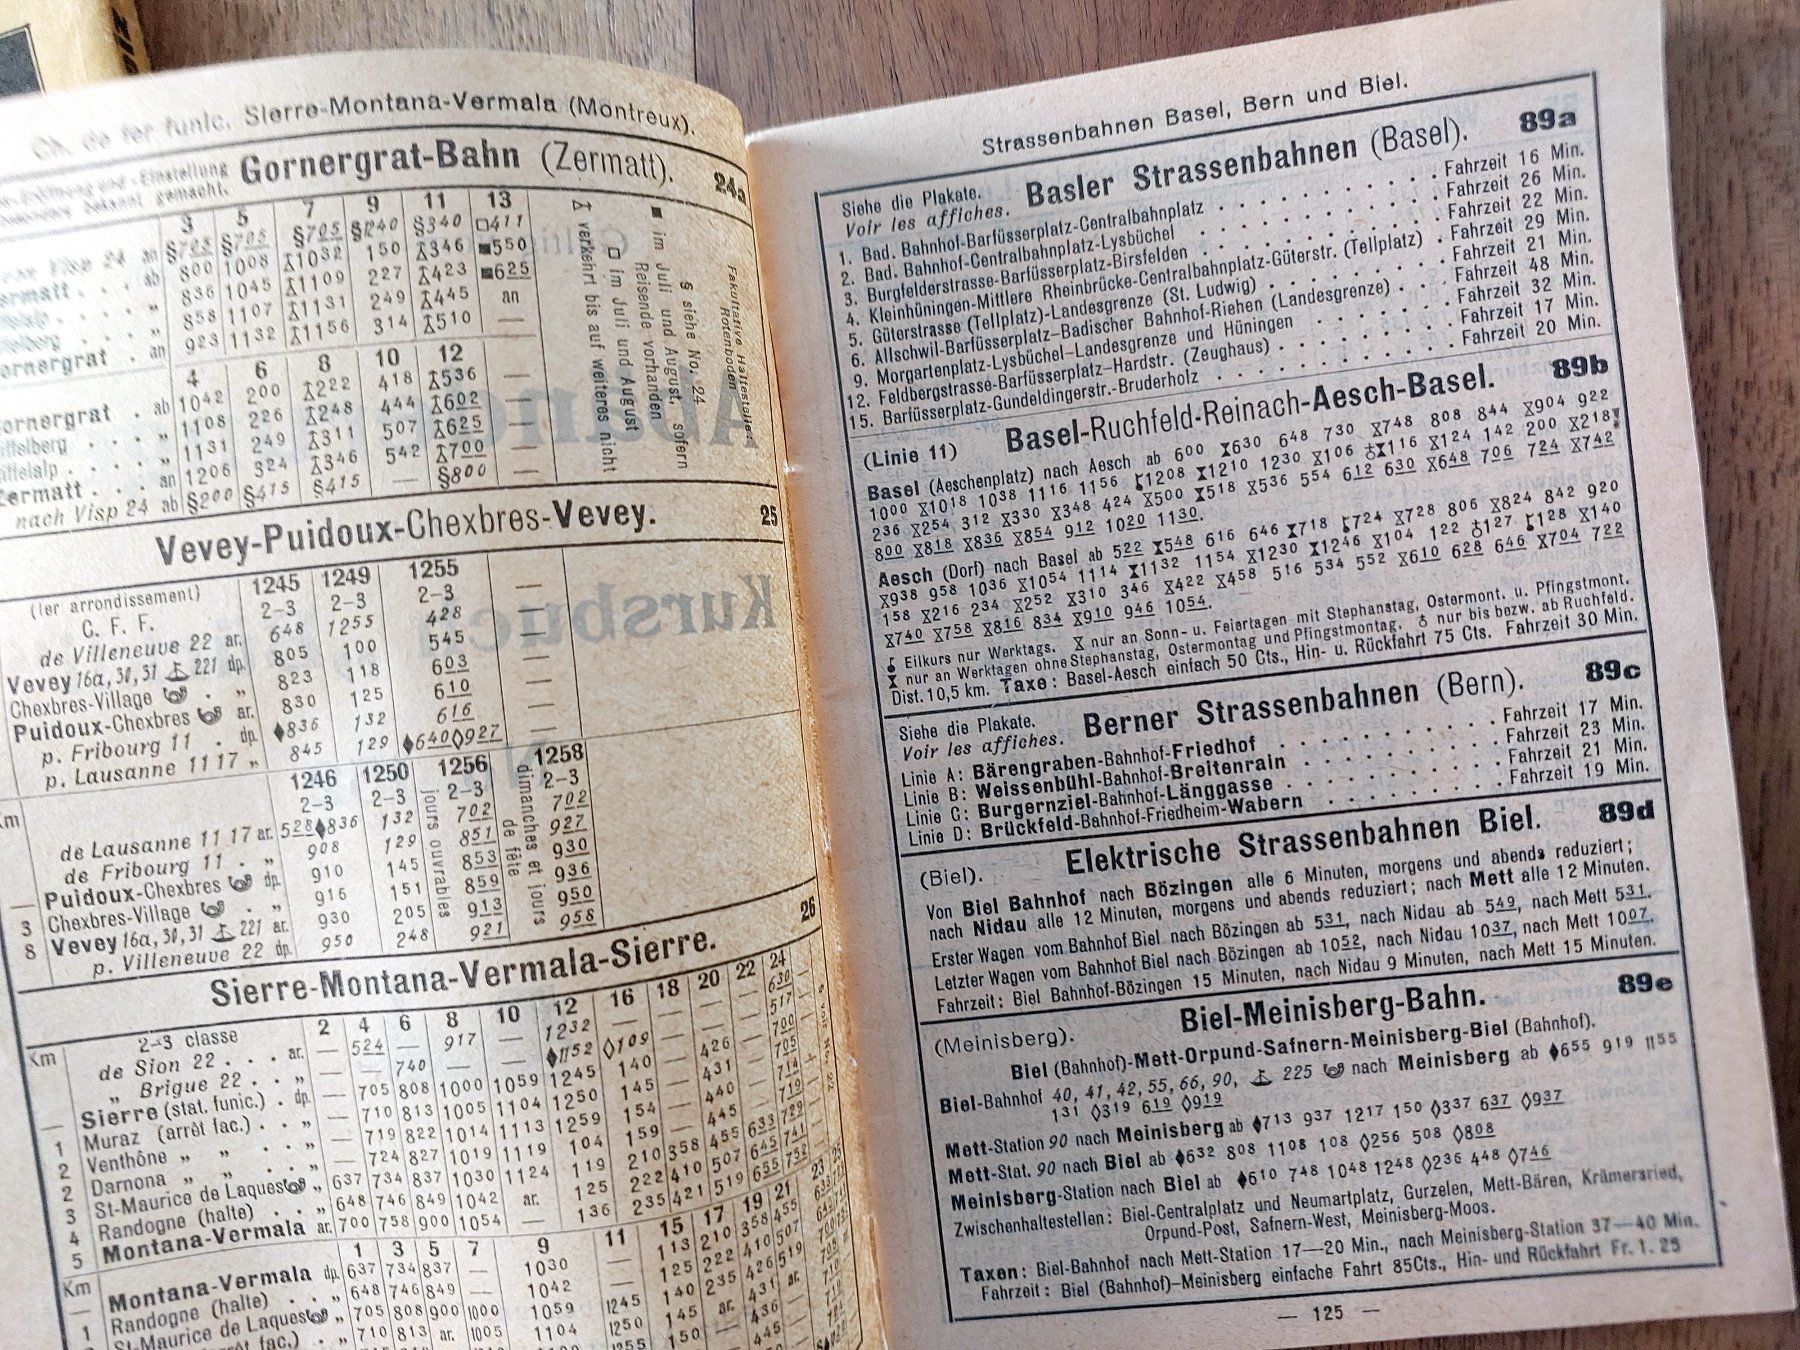 Ch. de fer funic. Sierre-Montana-Vermala (Montreux).
Gornergrat-Bahn (Zermatt). 24a
3 5 7 9 11 13
§705 §705 §705 §1240 §340 □411
800 1008 1032 150 346 ■550
836 1045 1109 227 423 ■625
858 1107 1131 249 445 an
923 1132 1156 314 510 —
4 6 8 10 12
ab 1042 200 222 418 536 —
1108 226 248 444 602 —
1131 249 311 507 625 —
an 1206 324 346 542 700 —
nach Visp 24 ab §200 §415 §415 — §800 —
verkehrt bis auf weiteres nicht
□ im Juli und August
■ im Juli und August, sofern
Reisende vorhanden
§ siehe No. 24
Fakultative Haltestelle:
Rotenboden
Vevey-Puidoux-Chexbres-Vevey. 25
(1er arrondissement) 1245 1249 1255 —
C. F. F. 2-3 2-3 2-3 —
de Villeneuve 22 ar. 648 1255 428 —
Vevey 16a, 30, 31 221 dp. 805 100 545 —
Chexbres-Village . „ 823 118 603 —
Puidoux-Chexbres ar. 830 125 610 —
p. Fribourg 11 . dp. ♦836 132 616 —
p. Lausanne 11 17 „ 845 129 ♦640 ◊927
Km 1246 1250 1256 1258
2-3 2-3 2-3 2-3
de Lausanne 11 17 ar. 528 ♦836 132 702 702
de Fribourg 11 . „ 908 129 851 927
— Puidoux-Chexbres dp. 910 145 853 930
3 Chexbres-Village . „ 916 151 859 936
8 Vevey 16a, 30, 31 221 ar. 930 205 913 950
p. Villeneuve 22 dp. 950 248 921 958
jours ouvrables
dimanches et jours
de fête
Sierre-Montana-Vermala-Sierre. 26
Km 2-3 classe 2 4 6 8 10 12 16 18 20 22 24
de Sion 22 . . . ar. — 524 — 917 — 1232
„ Brigue 22 . . „ — 740 — — ♦1152 ◊109
— Sierre (stat. funic.) . dp. — 705 808 1000 1059 1245 140 — 426
1 Muraz (arrêt fac.) . . „ — 710 813 1005 1104 1250 145 — 431
2 Venthône „ „ . „ — 719 822 1014 1113 1259 154 — 440
2 Darnona „ „ . „ — 724 827 1019 1119 104 159 — 445
3 St-Maurice de Laques „ 637 734 837 1030 1124 119 210 358 455 633
4 Randogne (halte) . . „ 648 746 849 1042 ar. 125 222 410 507 645 741
5 Montana-Vermala ar. 700 758 900 1054 — 136 235 421 519 655 752
Km 1 3 5 7 9 11 15 17 19 21 23 25
— Montana-Vermala dp. 637 734 837 — 1030 113 210 358 455
1 Randogne (halte) . . „ 648 746 849 — 1042 125 222 410 507
St-Maurice de Laques „ 705 808 900 1000 1059 1245 140 235 426 519
710 813 ar. 1005 1104 1250 145 ar. 431 ar.
Strassenbahnen Basel, Bern und Biel.
Siehe die Plakate. Basler Strassenbahnen (Basel). 89a
Voir les affiches.
1. Bad. Bahnhof-Barfüsserplatz-Centralbahnplatz . . . Fahrzeit 16 Min.
2. Bad. Bahnhof-Centralbahnplatz-Lysbüchel . . . Fahrzeit 26 Min.
3. Burgfelderstrasse-Barfüsserplatz-Birsfelden . . . Fahrzeit 22 Min.
4. Kleinhüningen-Mittlere Rheinbrücke-Centralbahnplatz-Güterstr. (Tellplatz) . Fahrzeit 29 Min.
5. Güterstrasse (Tellplatz)-Landesgrenze (St. Ludwig) . . . Fahrzeit 21 Min.
6. Allschwil-Barfüsserplatz-Badischer Bahnhof-Riehen (Landesgrenze) . . . Fahrzeit 48 Min.
9. Morgartenplatz-Lysbüchel-Landesgrenze und Hüningen . . . Fahrzeit 32 Min.
12. Feldbergstrasse-Barfüsserplatz-Hardstr. (Zeughaus) . . . Fahrzeit 17 Min.
15. Barfüsserplatz-Gundeldingerstr.-Bruderholz . . . Fahrzeit 20 Min.
(Linie 11) Basel-Ruchfeld-Reinach-Aesch-Basel. 89b
Basel (Aeschenplatz) nach Aesch ab 600 630 648 730 748 808 844 904 922
1000 1018 1038 1116 1156 1208 1210 1230 106 116 124 142 200 218
236 254 312 330 348 424 500 518 536 554 612 630 648 706 724 742
800 818 836 854 912 1020 1130.
Aesch (Dorf) nach Basel ab 522 548 616 646 718 724 728 806 824 842 920
938 958 1036 1054 1114 1132 1154 1230 1246 104 122 127 128 140
158 216 234 252 310 346 422 458 516 534 552 610 628 646 704 722
740 758 816 834 910 946 1054.
Eilkurs nur Werktags. nur an Sonn- u. Feiertagen mit Stephanstag, Ostermont. u. Pfingstmont.
nur an Werktagen ohne Stephanstag, Ostermontag und Pfingstmontag. nur bis bezw. ab Ruchfeld.
Dist. 10,5 km. Taxe: Basel-Aesch einfach 50 Cts., Hin- u. Rückfahrt 75 Cts. Fahrzeit 30 Min.
Siehe die Plakate. Berner Strassenbahnen (Bern). 89c
Voir les affiches.
Linie A: Bärengraben-Bahnhof-Friedhof . . . Fahrzeit 17 Min.
Linie B: Weissenbühl-Bahnhof-Breitenrain . . . Fahrzeit 23 Min.
Linie C: Burgernziel-Bahnhof-Länggasse . . . Fahrzeit 21 Min.
Linie D: Brückfeld-Bahnhof-Friedheim-Wabern . . . Fahrzeit 19 Min.
(Biel). Elektrische Strassenbahnen Biel. 89d
Von Biel Bahnhof nach Bözingen alle 6 Minuten, morgens und abends reduziert;
nach Nidau alle 12 Minuten, morgens und abends reduziert; nach Mett alle 12 Minuten.
Erster Wagen vom Bahnhof Biel nach Bözingen ab 531, nach Nidau ab 549, nach Mett 531.
Letzter Wagen vom Bahnhof Biel nach Bözingen ab 1052, nach Nidau 1037, nach Mett 1007.
Fahrzeit: Biel Bahnhof-Bözingen 15 Minuten, nach Nidau 9 Minuten, nach Mett 15 Minuten.
(Meinisberg). Biel-Meinisberg-Bahn. 89e
Biel (Bahnhof)-Mett-Orpund-Safnern-Meinisberg-Biel (Bahnhof).
Biel-Bahnhof 40, 41, 42, 55, 66, 90, 225 nach Meinisberg ab ♦655 919 1155
131 ◊319 619 ◊919
Mett-Station 90 nach Meinisberg ab ♦713 937 1217 150 ◊337 637 ◊937
Mett-Stat. 90 nach Biel ab ♦632 808 1108 108 ◊256 508 ◊808
Meinisberg-Station nach Biel ab ♦610 748 1048 1248 ◊236 448 ◊746
Zwischenhaltestellen: Biel-Centralplatz und Neumartplatz, Gurzelen, Mett-Bären, Krämersried,
Orpund-Post, Safnern-West, Meinisberg-Moos.
Taxen: Biel-Bahnhof nach Mett-Station 17—20 Min., nach Meinisberg-Station 37—40 Min.
Fahrzeit: Biel (Bahnhof)—Meinisberg einfache Fahrt 85Cts., Hin- und Rückfahrt Fr. 1. 25
— 125 —